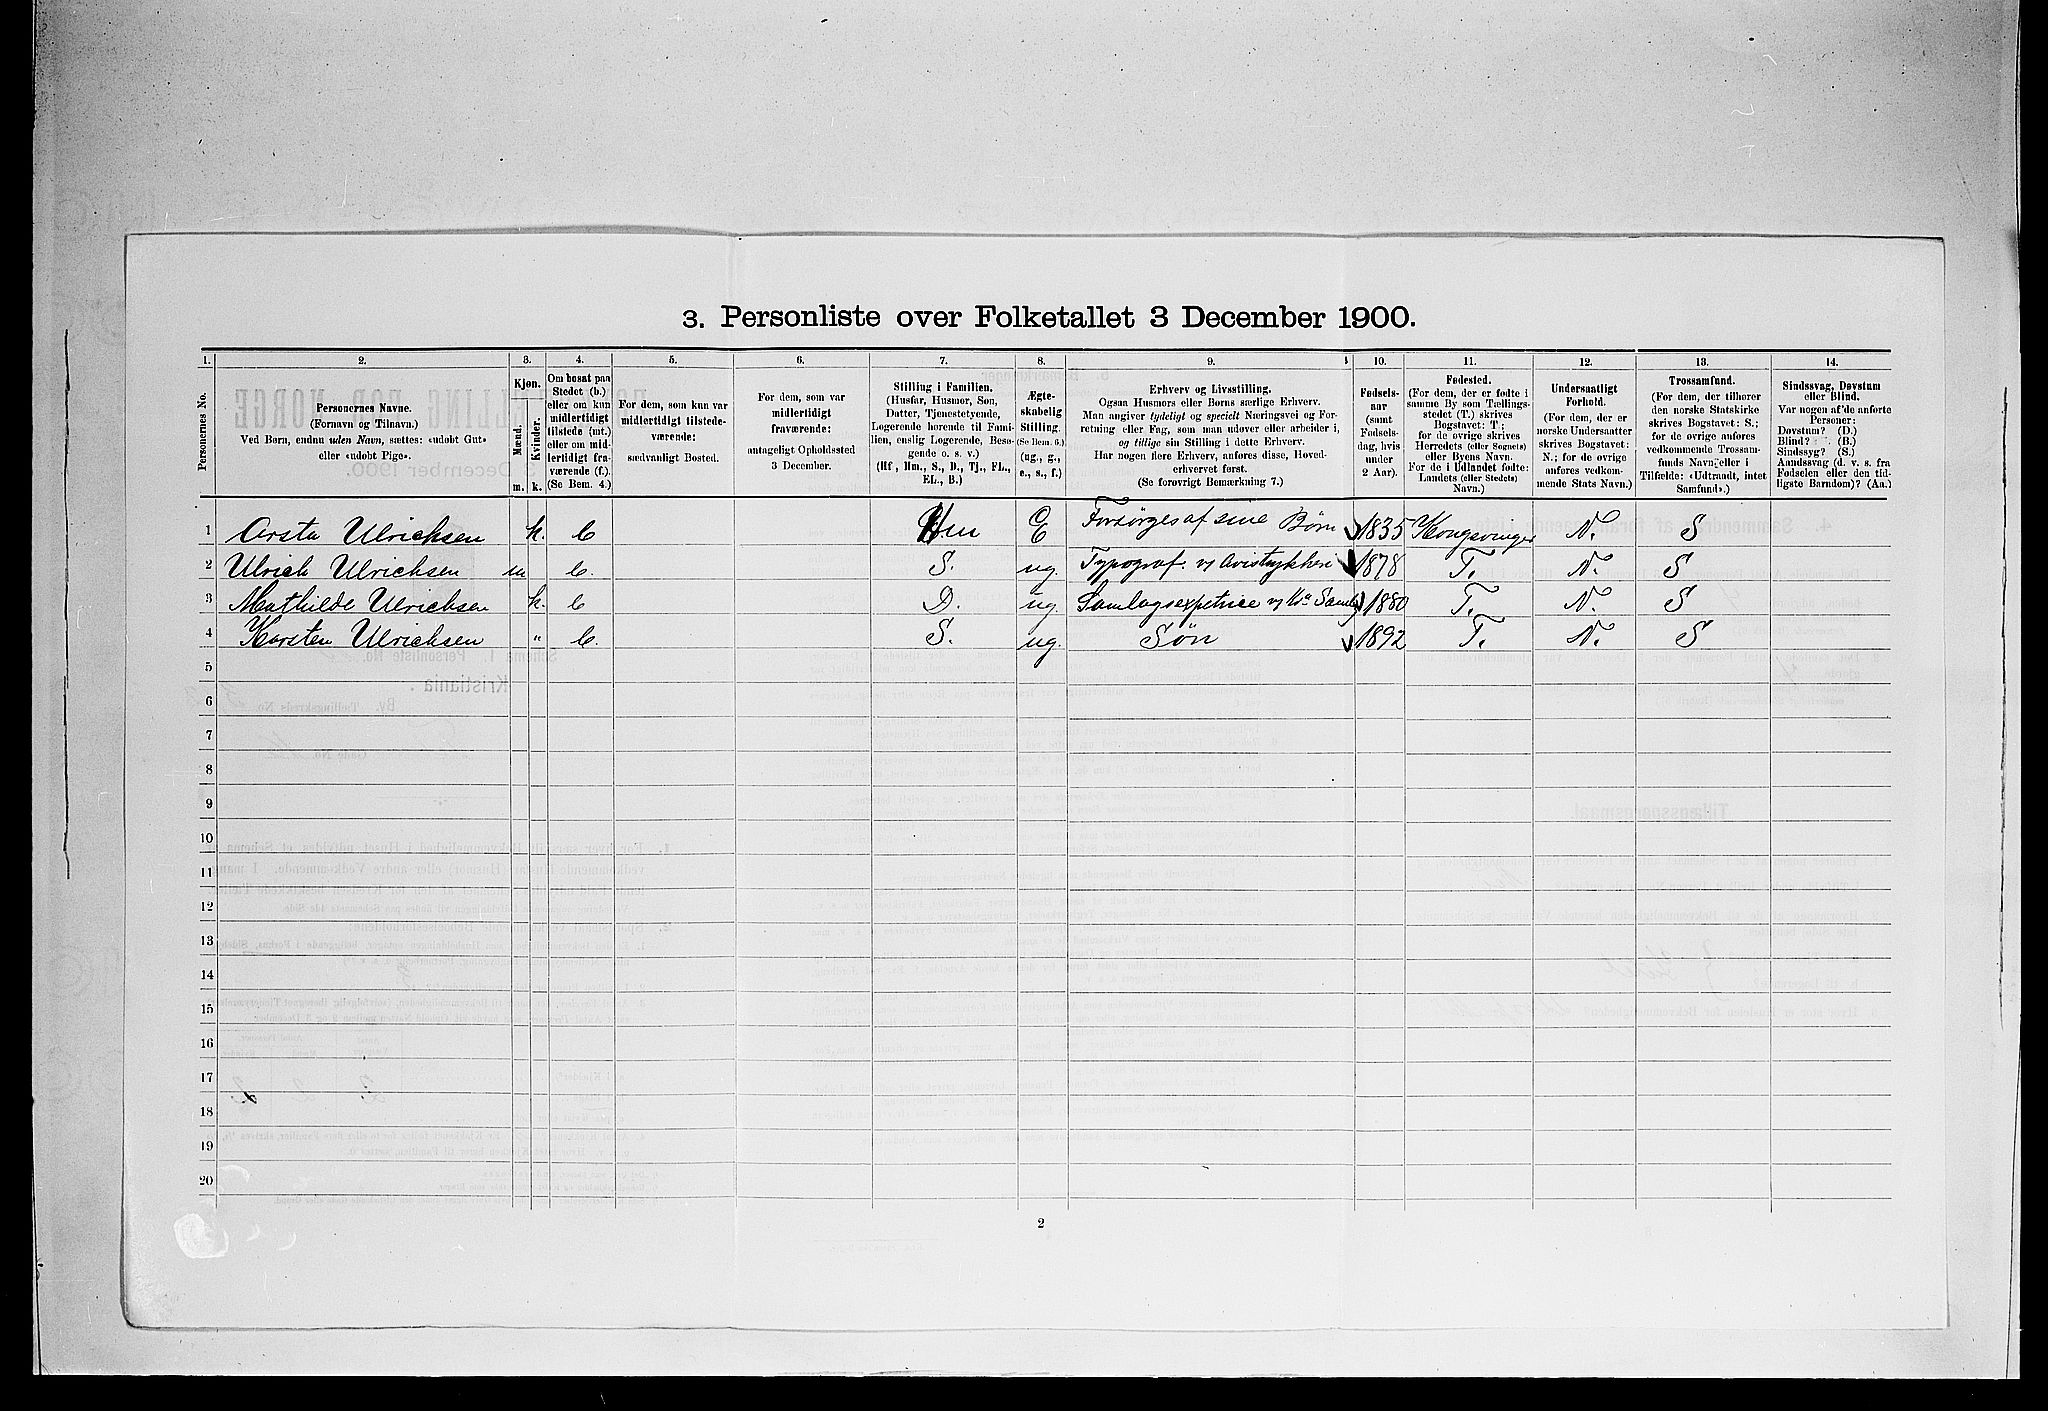 3. Personliste over Folketallet 3 December 1900.
1.
2.
3.
4.
5.
6.
7.
8.
9.
10.
11.
12.
13.
14.
Personernes No.
Personernes Navne.
(Fornavn og Tilnavn.)
Ved Børn, endnu uden Navn, sættes: «udøbt Gut»
eller «udøbt Pige».
Kjøn.
Mænd.
Kvinder.
m.
k.
Om bosat paa
Stedet (b.)
eller om kun
midlertidigt
tilstede (mt.)
eller om mid-
lertidigt fra-
værende (f.).
(Se Bem. 4.)
For dem, som kun var
midlertidigt tilstede-
værende:
sædvanligt Bosted.
For dem, som var
midlertidigt
fraværende:
antageligt Opholdssted
3 December.
Stilling i Familien.
(Husfar, Husmor, Søn,
Datter, Tjenestetyende,
Logerende hørende til Fami-
lien, enslig Logerende, Besø-
gende o. s. v.)
(Hf, Hm., S., D., Tj., FL.,
EL., B.)
Ægte-
skabelig
Stilling.
(Se Bem. 6.)
(ug., g.,
e., s., f.)
Erhverv og Livsstilling.
Ogsaa Husmors eller Børns særlige Erhverv.
Man angiver tydeligt og specielt Næringsvei og For-
retning eller Fag, som man udøver eller arbeider i,
og tillige sin Stilling i dette Erhverv.
Har nogen flere Erhverv, anføres disse, Hoved-
erhvervet først.
(Se forøvrigt Bemærkning 7.)
Fødsels-
aar
(samt
Fødsels-
dag, hvis
under
2 Aar).
Fødested.
(For dem, der er fødte i
samme By som Tællings-
stedet (T.) skrives
Bogstavet: T.;
for de øvrige skrives
Herredets (eller Sognets)
eller Byens Navn.
For de i Udlandet fødte:
Landets (eller Stedets)
Navn.)
Undersaatligt
Forhold.
(For dem, der er
norske Undersaatter
skrives Bogstavet:
N.; for de øvrige
anføres vedkom-
mende Stats Navn.)
Trossamfund.
(For dem, der tilhører
den norske Statskirke
skrives Bogstavet: S.;
for de øvrige anføres
vedkommende Trossam-
funds Navn, eller i
Tilfælde: «Udtraadt, intet
Samfund».)
Sindssvag, Døvstum
eller Blind.
Var nogen af de anførte
Personer:
Døvstum? (D.)
Blind? (B.)
Sindssyg? (S.)
Aandssvag (d. v. s. fra
Fødselen eller den tid-
ligste Barndom)? (Aa.)
1 Ulrichsen k. b Hm E Forsørges af sine Børn 1835 Kongsvinger N. S
2 Ulrich Ulrichsen m b. S. ug. Typograf. v/ Avistrykkeri 1878 T. N. S
3 Mathilde Ulrichsen k. b D. ug. 1880 T. N. S
4 Karsten Ulrichsen " b. S. ug. Søn 1892 T. N. S
5
6
7
8
9
10
11
12
13
14
15
16
17
18
19
20
2